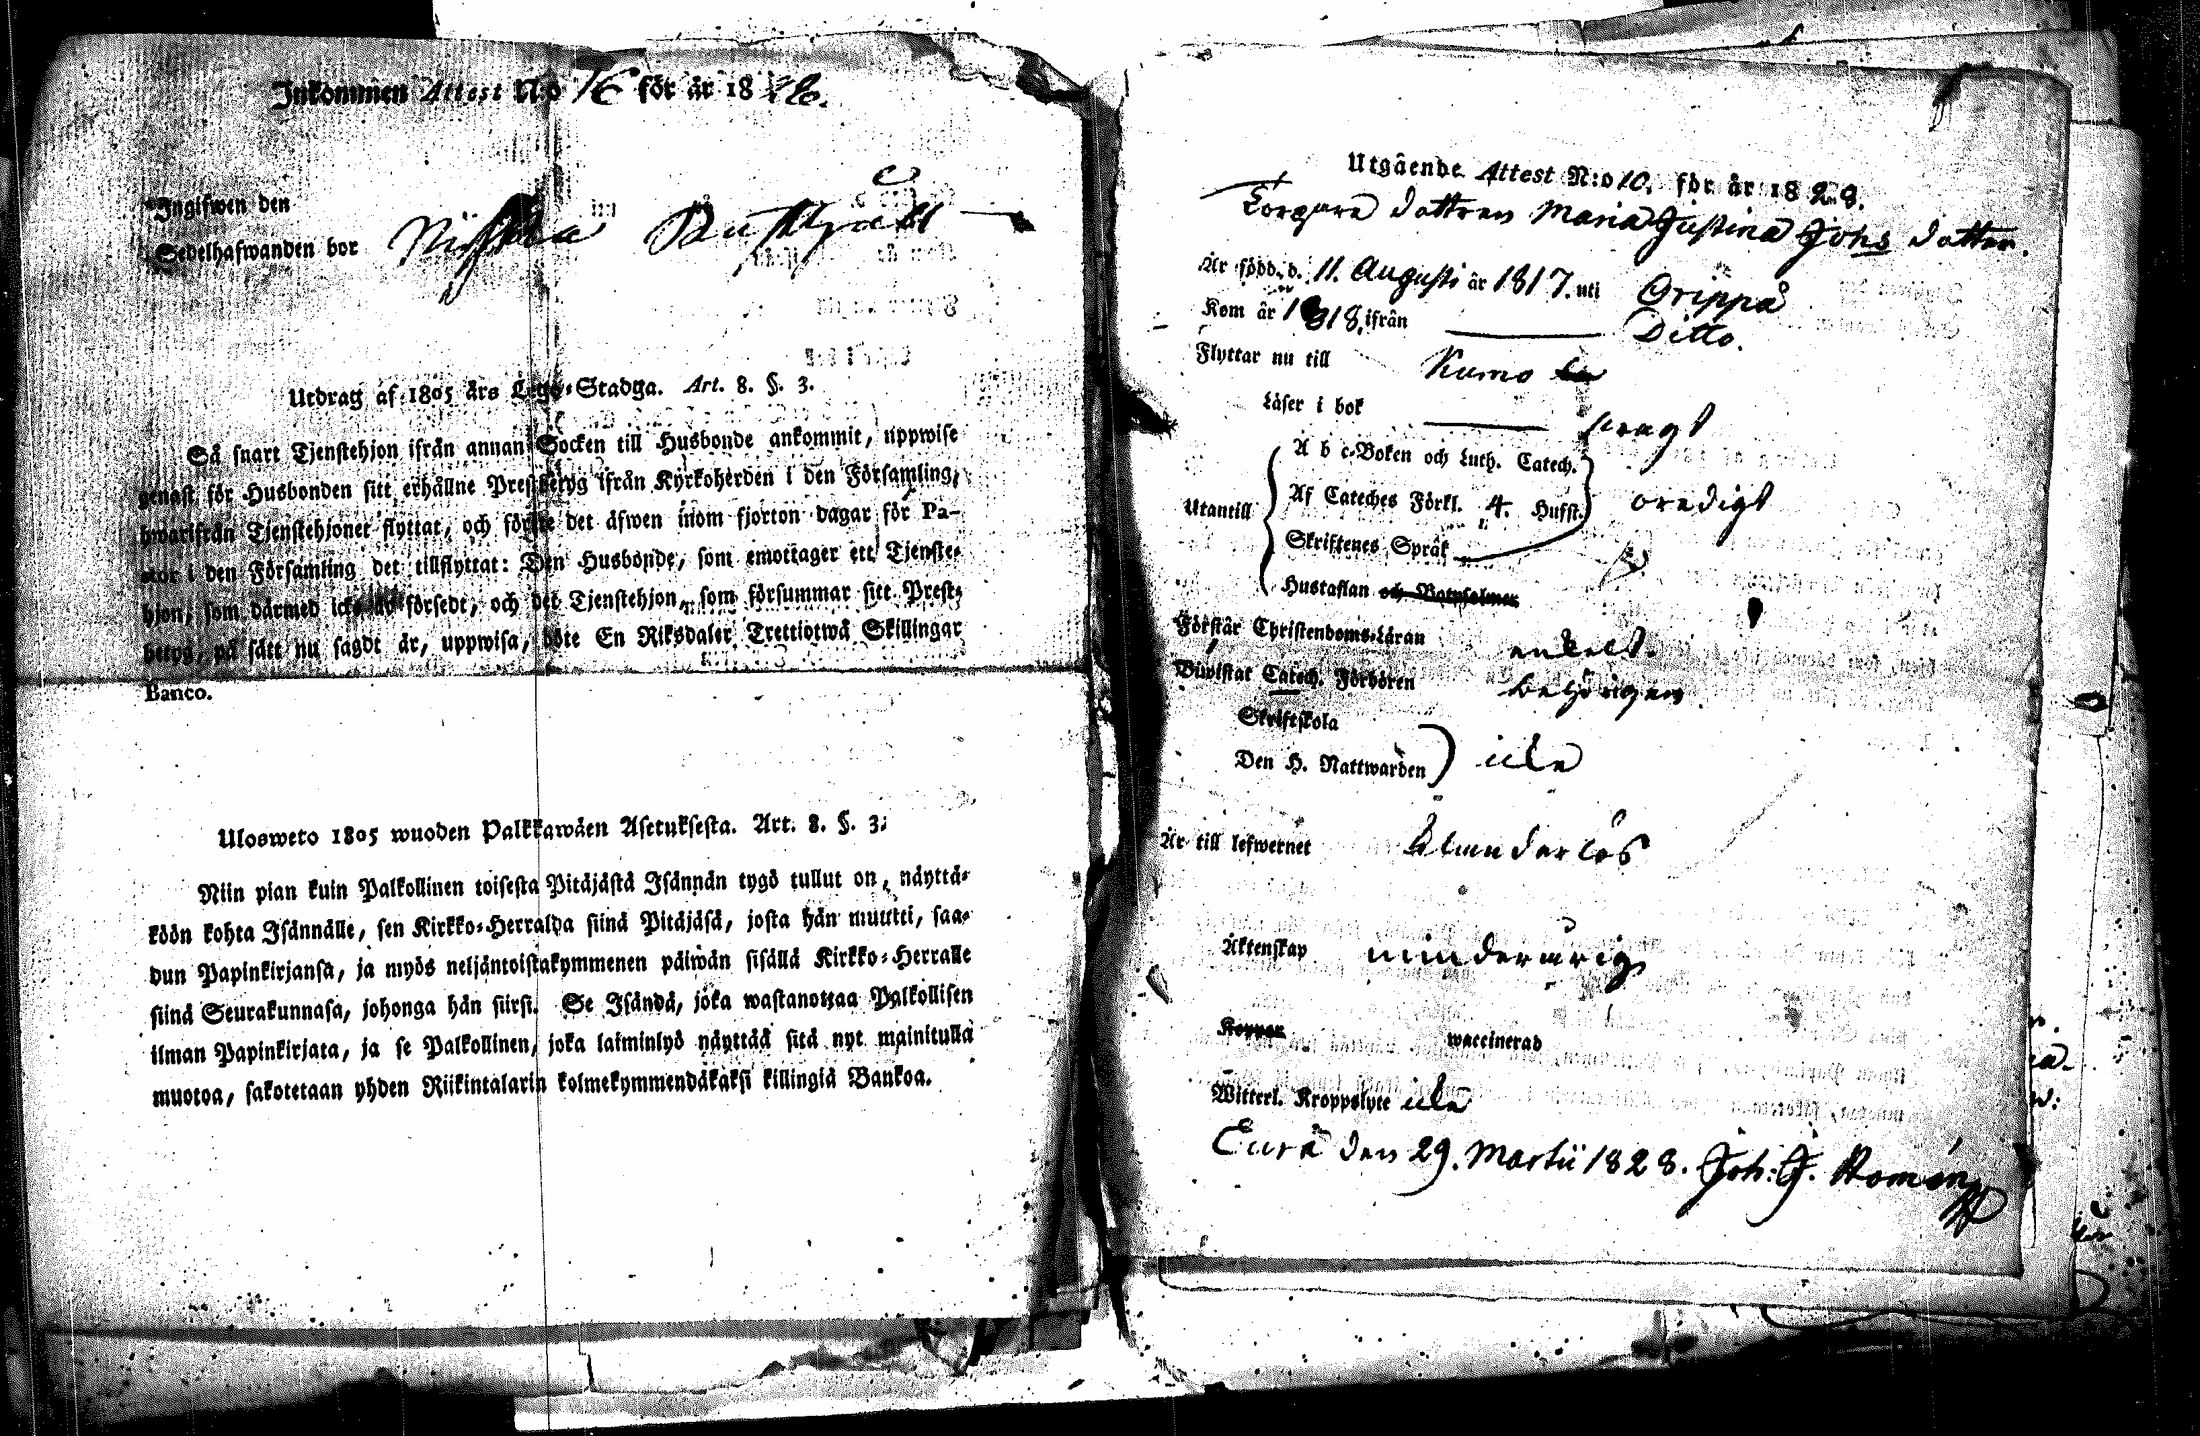 Inkommen Attest N:o 76 för år 18
Ingifwen den
Sedelhafwanden bor
Utdrag af 1805 års Lego-Stadga. Art. 8. §. 3.
Så snart Tjenstehjon ifrån annan Socken till Husbonde ankommit, uppwise
genast för Husbonden sitt erhållne Prestbetyg ifrån Kyrkoherden i den Församling,
hwarifrån Tjenstehjonet flyttat, och förete det äfwen inom fjorton dagar för Pa-
stor i den Församling det tillflyttat: Den Husbonde, som emottager ett Tjenste-
hjon, som därmed icke är försedt, och det Tjenstehjon, som försummar sitt Prest-
betyg, på sätt nu sagdt är, uppwisa, böte En Riksdaler Trettiotwå Skillingar
Banco.
Ulosweto 1805 wuoden Palkkawäen Asetuksesta. Art. 8. §. 3.
Niin pian kuin Palkollinen toisesta Pitäjästä Isännän tygö tullut on, näyttä-
köön kohta Isännälle, sen Kirkko-Herralda siinä Pitäjäsä, josta hän muutti, saa-
dun Papinkirjansa, ja myös neljäntoistakymmenen päiwän sisällä Kirkko-Herralle
siinä Seurakunnasa, johonga hän siirsi. Se Isändä, joka wastanottaa Palkollisen
ilman Papinkirjata, ja se Palkollinen, joka laiminlyö näyttää sitä nyt mainitulla
muotoa, sakotetaan yhden Riikintalarin kolmekymmendäkaksi killingiä Bankoa.
Utgående Attest N:o 10. för år 1828.
Torpare dottren Maria Justina Johs dotter.
Är född d. 11. Augusti år 1817. uti Grippå
Kom år 1818, ifrån Ditto.
Flyttar nu till Kumo
Läser i bok swagt
A b c-Boken och Luth. Catech.
Utantill Af Cateches Förkl. 4. Hufst. oredigt
Skriftenes Språk
Hustaflan och Botpsalmer
Förstår Christendoms-Läran enkelt.
Biwistat Catech. Förhören behörigen
Skriftskola
Den H. Nattwarden icke
Är till lefwernet klanderlös
Äktenskap minderårig
Koppor waccinerad
Witterl. Kroppslyte icke
Eura den 29. Martii 1828. Joh: G. Romén